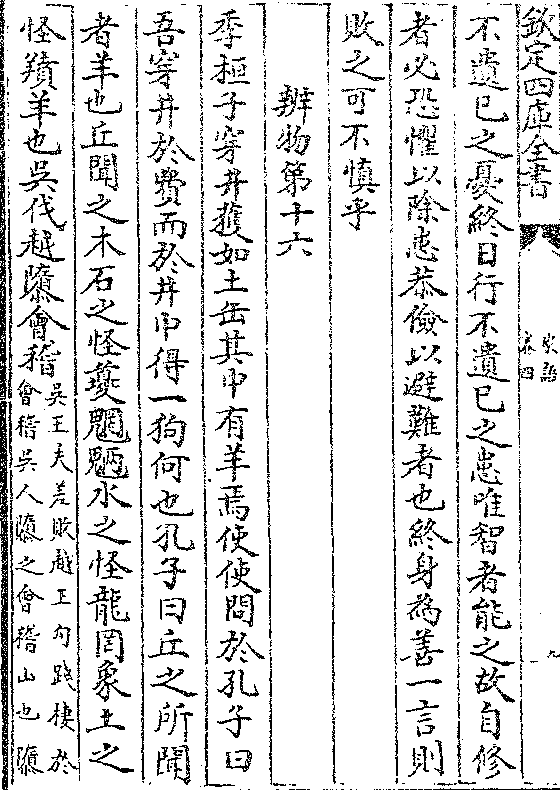 欽定四庫全書
家語
卷四
九
不遺己之憂終日行不遺己之患唯智者能之故自修
者必恐懼以除患恭儉以避難者也終身為善一言則
敗之可不慎乎
辨物第十六
季桓子穿井獲如土缶其中有羊焉使使問於孔子曰
吾穿井於費而於井中得一狗何也孔子曰丘之所聞
者羊也丘聞之木石之怪夔魍魎水之怪龍罔象土之
怪羵羊也吳伐越隳會稽
吳王夫差敗越王勾踐棲於
會稽吳人隳之會稽山也隳